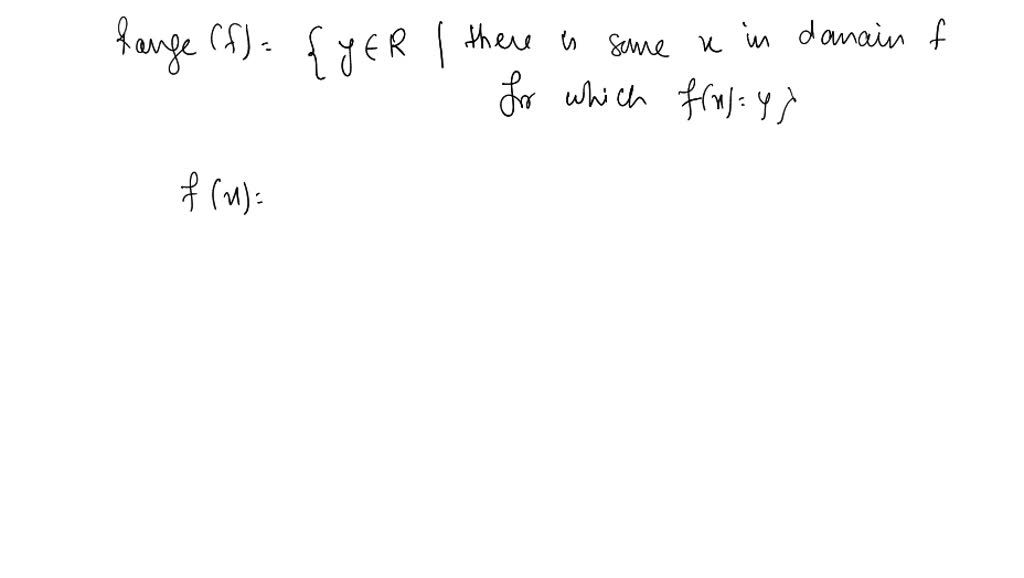 Range (f) = { y ∈ R | there is some x in domain f
for which f(x) = y }
f (x) =